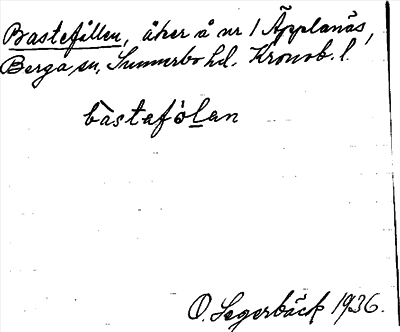 Bastefållen, åker å nr 1 Äpplanäs,
Berga sn, Sunnerbo hd. Kronob. l.
bàstafòlan
O. Segerbäck 1936.